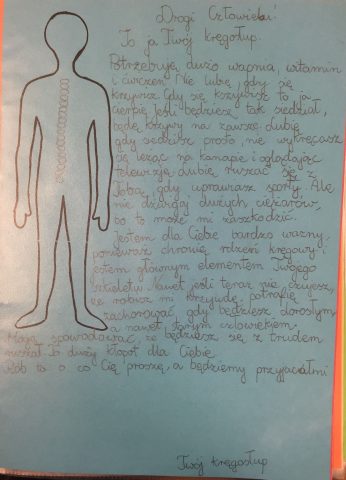 Drogi Człowieku!
To ja Twój kręgosłup.
Potrzebuję dużo wapnia, witamin
i ćwiczeń. Nie lubię, gdy się
krzywisz. Gdy się krzywisz to ja
cierpię. Jeśli będziesz tak siedział,
będę krzywy na zawsze. Lubię
gdy siedzisz prosto, nie wykręcasz
się leżąc na kanapie i oglądając
telewizję. Lubię ruszać się z
Tobą, gdy uprawiasz sporty. Ale
nie dźwigaj dużych ciężarów,
bo to może mi zaszkodzić.
Jestem dla Ciebie bardzo ważny,
ponieważ chronię rdzeń kręgowy i
jestem głównym elementem Twojego
szkieletu. Nawet jeśli teraz nie czujesz,
że robisz mi krzywdę, potrafię
zachorować gdy będziesz dorosłym
a nawet starym człowiekiem.
Mogę spowodować, że będziesz się z trudem
ruszał. To duży kłopot dla Ciebie.
Rób to o co Cię proszę, a będziemy przyjaciółmi
Twój kręgosłup